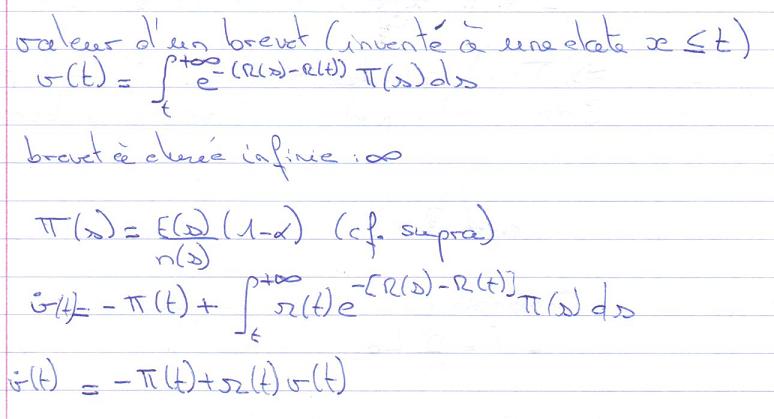 valeur d'un brevet (inventé à une date x ≤ t)
v(t) = ∫_t^{+∞} e^{-(R(s)-R(t))} π(s) ds
brevet à durée infinie : ∞
π(s) = E(s)/n(s) (1-α) (cf. supra)
v̇(t) = -π(t) + ∫_t^{+∞} r(t) e^{-[R(s)-R(t)]} π(s) ds
v̇(t) = -π(t) + r(t) v(t)